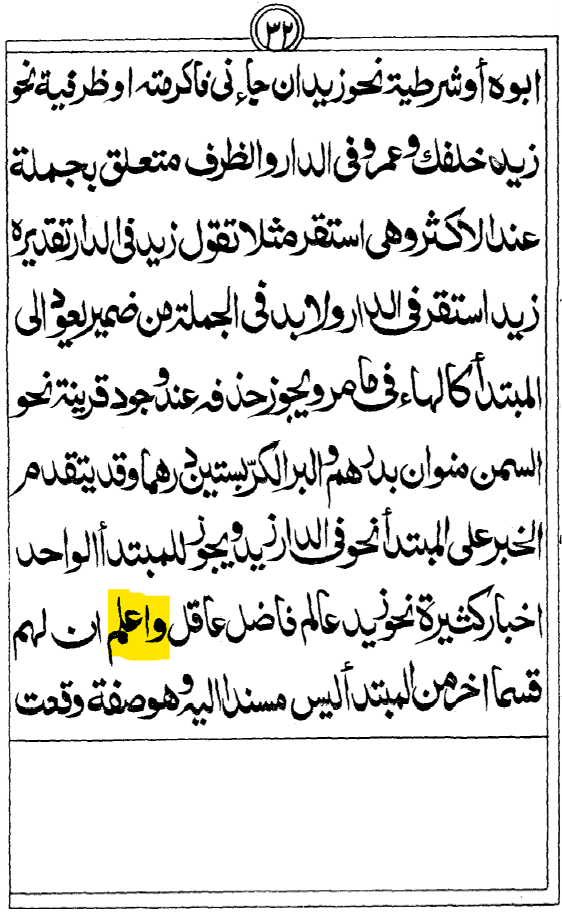 ٣٢
ابوه أو شرطية نحو زيد ان جاءنى فاكرمته او ظرفية نحو
زيد خلفك وعمرو فى الدار والظرف متعلق بجملة
عند الاكثر وهى استقر مثلا تقول زيد فى الدار تقديره
زيد استقر فى الدار ولا بد فى الجملة من ضمير يعود الى
المبتدأ كالهاء فى ما مر ويجوز حذفه عند وجود قرينة نحو
السمن منوان بدرهم والبر الكرّ بستين درهما وقد يتقدم
الخبر على المبتدأ نحو فى الدار زيد ويجوز للمبتدأ الواحد
اخبار كثيرة نحو زيد عالم فاضل عاقل واعلم ان لهم
قسما اخر من المبتدأ ليس مسندا اليه وهو صفة وقعت